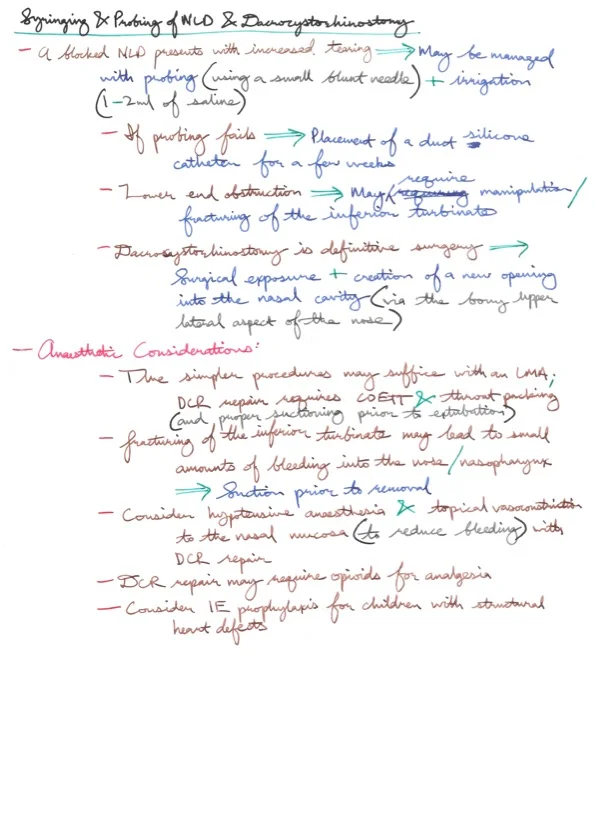 Syringing & Probing of NLD & Dacrocystorhinostomy
- A blocked NLD presents with increased tearing ⇒ May be managed
with probing (using a small blunt needle) + irrigation
(1-2ml of saline)
- If probing fails ⇒ Placement of a duct silicone
catheter for a few weeks
require
- Lower end obstruction ⇒ May manipulation/
fracturing of the inferior turbinate
- Dacrocystorhinostomy is definitive surgery →
Surgical exposure + creation of a new opening
into the nasal cavity (via the bony upper
lateral aspect of the nose)
- Anaesthetic Considerations:
- The simpler procedures may suffice with an LMA;
DCR repair requires COETT & throat packing
(and proper suctioning prior to extubation)
- Fracturing of the inferior turbinate may lead to small
amounts of bleeding into the nose/nasopharynx
⇒ Suction prior to removal
- Consider hypotensive anaesthesia & topical vasoconstriction
to the nasal mucosa (to reduce bleeding) with
DCR repair
- DCR repair may require opioids for analgesia
- Consider IE prophylaxis for children with structural
heart defects